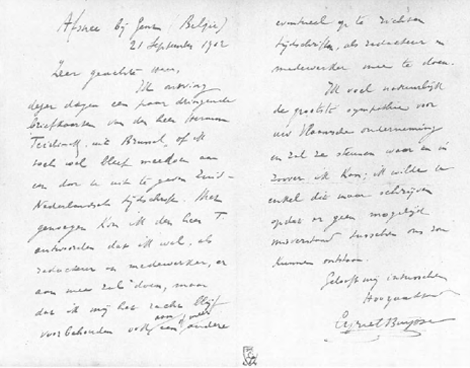 Afsnee bij Gent (België)
21 September 1902
Zeer geachte Heer,
Ik ontving
dezer dagen een paar dringende
briefkaarten van den heer Herman
Teirlinck, uit Brussel, of ik
toch wel bleef meedoen aan
een door u uit te geven Zuid-
Nederlandsch tijdschrift. Met
genoegen kon ik den heer T
antwoorden dat ik wel, als
redacteur en medewerker, er
aan mee zal doen, maar
dat ik mij het recht blijf
voorbehouden ook aan andere
eventueel op te richten
tijdschriften, als redacteur en
medewerker mee te doen.
Ik voel natuurlijk
de grootste sympathie voor
uw Vlaamsche onderneming
en zal ze steunen waar en in
zoover ik kan; ik wilde u
enkel dit maar schrijven
opdat er geen mogelijk
misverstand tusschen ons zou
kunnen ontstaan.
Geloof mij intusschen
Hoogachtend
Cyriel Buysse